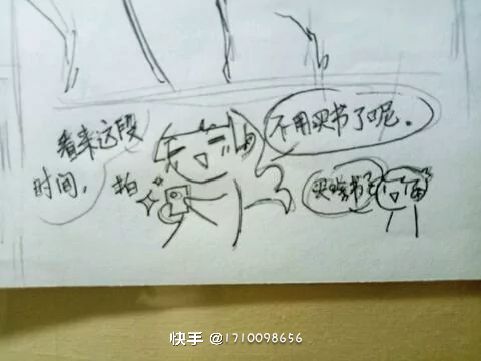 看来这段
时间，
拍
不用买书了呢。
买啥书
快手 @1710098656